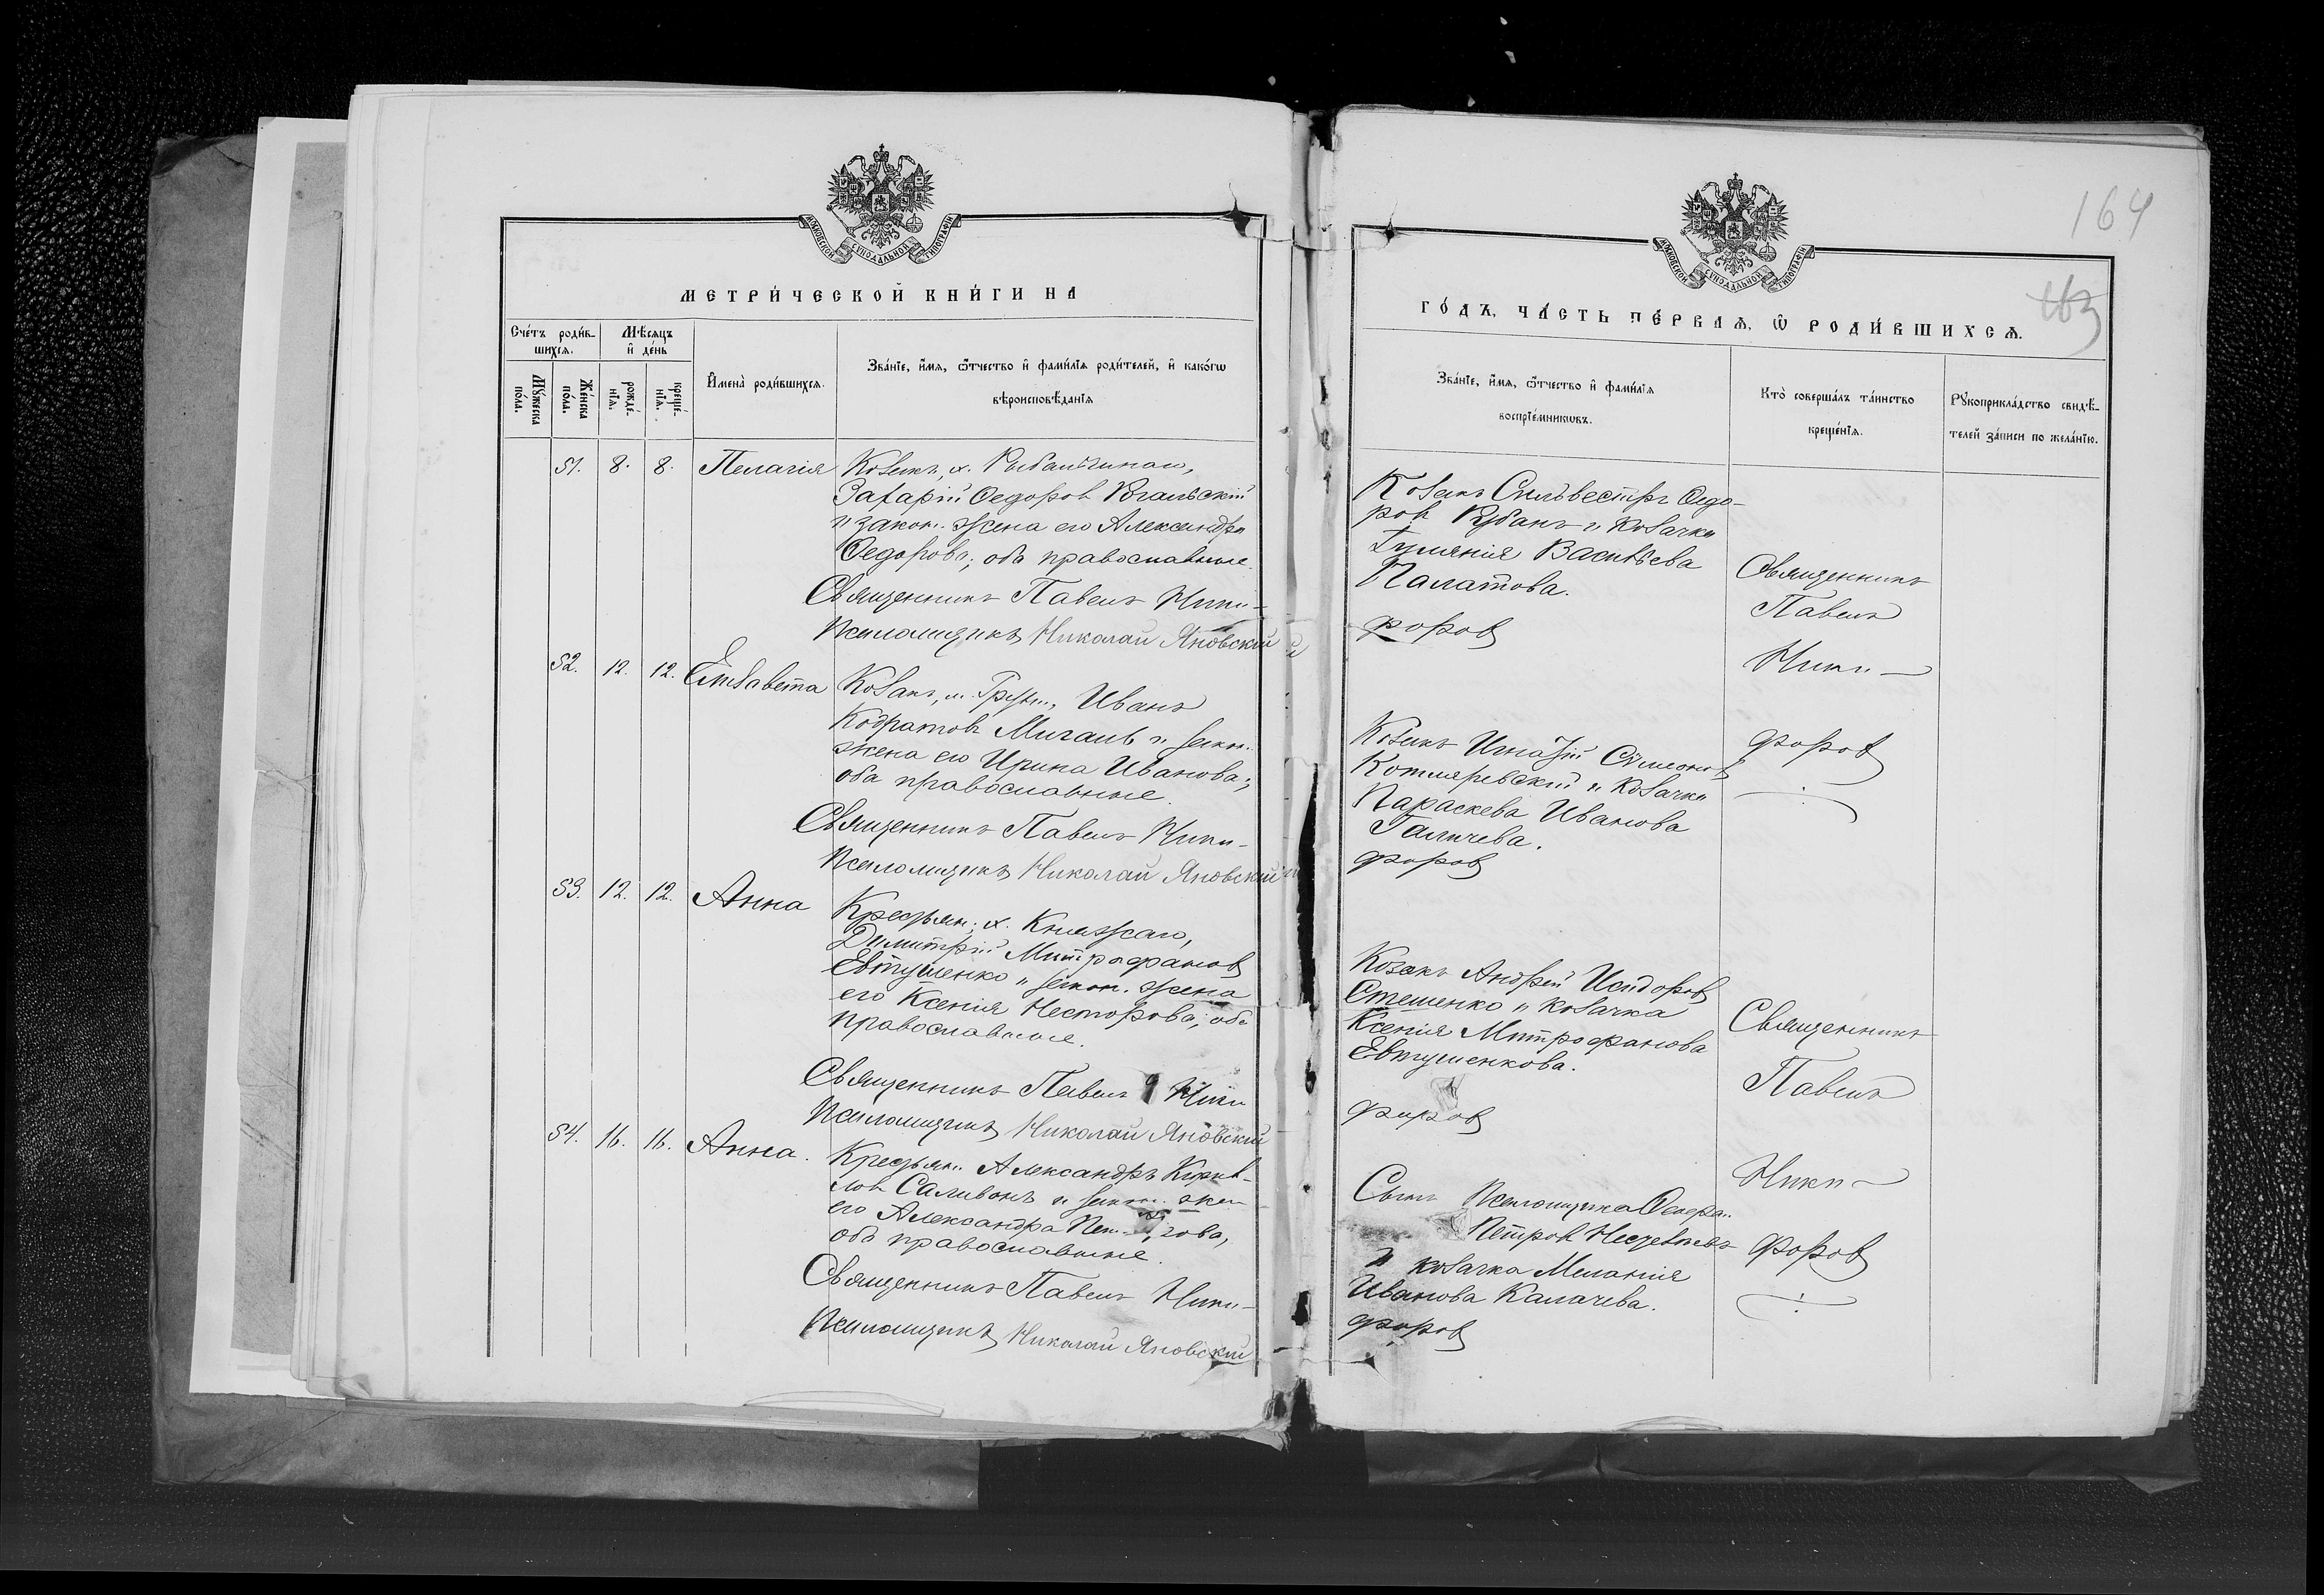 МОСКОВСКОЙ СѴНОДАЛЬНОЙ ТИПОГРАФІИ
МЕТРИ́ЧЕСКОЙ КНИ́ГИ НА
Сче́тъ роди́в-
шихся.
Мѣ́сяцъ
и҆ де́нь
Му́жеска
по́ла.
Же́нска
по́ла.
рожде́-
нїя.
креще́-
нїя.
И҆мена̀ роди́вшихся.
Зва́нїе, и҆́мя, ѻ҆́тчество и҆ фами́лїя роди́телей, и҆ како́гѡ
вѣроисповѣ́данїя
51. 8. 8. Пелагія
Козакъ, х.
Захарій Ѳедоров
и закон. жена его Александра
Ѳедорова; оба православные.
Священникъ Павелъ Ники-
Псаломщикъ Николай Яновский
52. 12. 12. Елисавета
Козакъ, м. Грун., Иванъ
Кодратовъ и закон.
жена его Ирина Иванова;
оба православные.
Священникъ Павелъ Ники-
Псаломщикъ Николай Яновский
53. 12. 12. Анна
Крестьян. х. Княжаго,
Димитрій Митрофановъ
Евтушенко и закон. жена
его Ксенія Несторова; оба
православные.
Священникъ Павелъ Ники
Псаломщикъ Николай Яновский
54. 16. 16. Анна.
Крестьян. Александръ Кирил-
ловъ Саливонъ и закон. жен
его Александра
оба православные.
Священникъ Павелъ Ники-
Псаломщикъ Николай Яновский
164
163
МОСКОВСКОЙ СѴНОДАЛЬНОЙ ТИПОГРАФІИ
ГО́ДЪ, ЧА́СТЬ ПЕ́РВАЯ, Ѡ҆ РОДИ́ВШИХСЯ.
Зва́нїе, и҆́мя, ѻ҆́тчество и҆ фами́лїя
воспрїе́мникѡвъ.
Кто̀ соверша́лъ та́инство
креще́нїя.
Рꙋкоприкла́дство свидѣ́-
телей за́писи по жела́нїю.
Козакъ Сильвестръ Ѳедо-
ровъ Рубанъ и козачка
Васильева
Палатова.
форовъ
Священникъ
Павелъ
Ники-
форовъ
Козакъ Игнатій Сѵмеонов
Котляревскій и козачка
Параскева Иванова
Галичева.
форовъ
Козакъ Андрей Исидоровъ
Стешенко и козачка
Ксенія Митрофанова
Евтушенкова.
форовъ
Священникъ
Павелъ
Ники-
форовъ
Сынъ Псаломщика
Петровъ
и козачка Меланія
Иванова Калачева.
форовъ